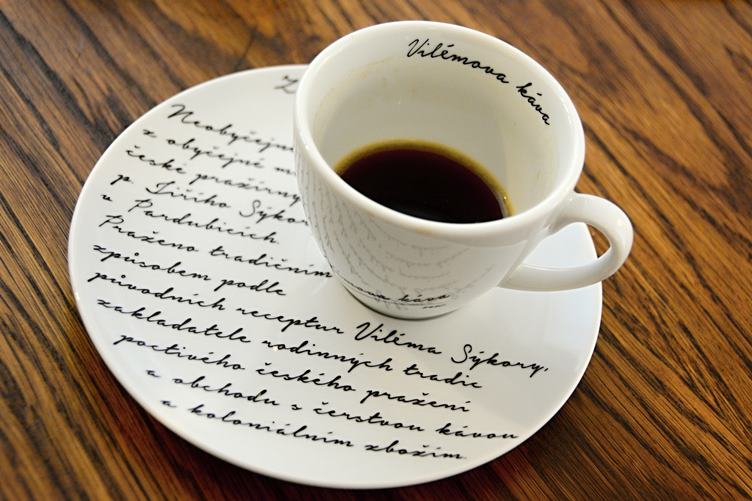 Vilémova káva
Neobyčejn
z obyčejné m
české pražírny
p. Jiřího Sýkor
v Pardubicích.
Praženo tradičním
způsobem podle
původních receptur Viléma Sýkory,
zakladatele rodinných tradic
poctivého českého pražení
a obchodu s čerstvou kávou
a koloniálním zbožím.
káva